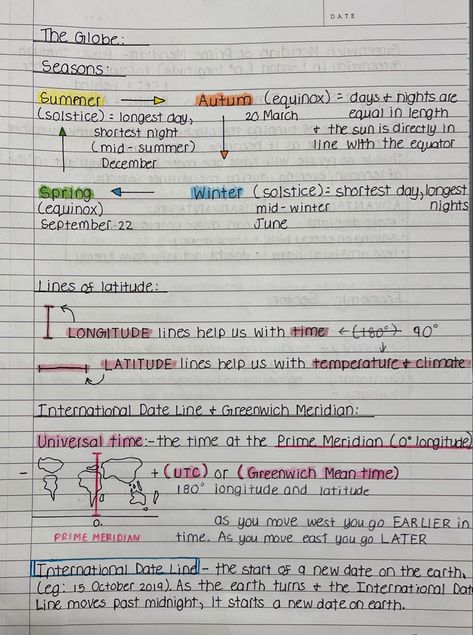 DATE
The Globe:
Seasons:
Summer → Autum (equinox) = days + nights are
(solstice) = longest day, 20 March equal in length
shortest night + the sun is directly in
(mid-summer) line with the equator
December
Spring ← Winter (solstice) = shortest day, longest
(equinox) mid-winter nights
September 22 June
Lines of latitude:
LONGITUDE lines help us with time ← (180°) 90°
LATITUDE lines help us with temperature + climate
International Date Line + Greenwich Meridian:
Universal time:- the time at the Prime Meridian (0° longitude)
- + (UTC) or (Greenwich Mean time)
180° longitude and latitude
0.
PRIME MERIDIAN
as you move west you go EARLIER in
time. As you move east you go LATER
International Date Line - the start of a new date on the earth,
(eg: 15 October 2019). As the earth turns + the International Date
Line moves past midnight, it starts a new date on earth.